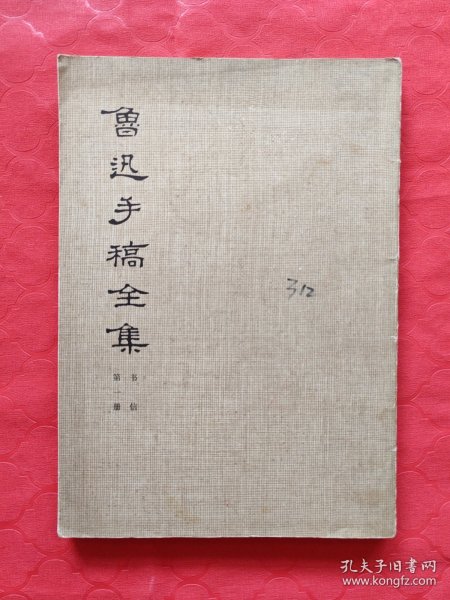 魯迅手稿全集
书信
第一册
312
孔夫子旧书网
www.kongfz.com